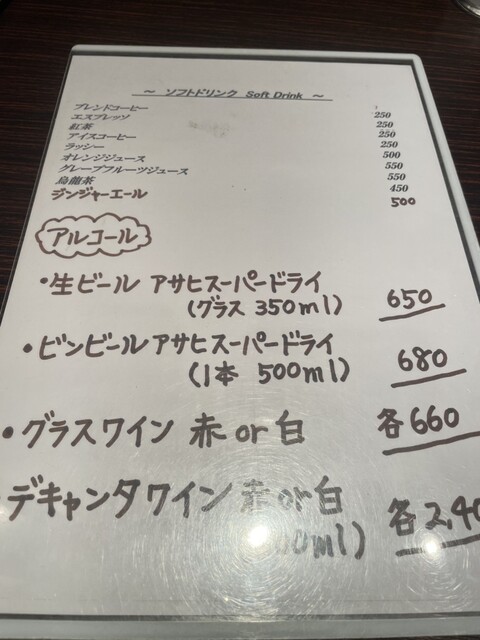 ～ ソフトドリンク Soft Drink ～
ブレンドコーヒー 250
エスプレッソ 250
紅茶 250
アイスコーヒー 250
ラッシー 500
オレンジジュース 550
グレープフルーツジュース 550
烏龍茶 450
ジンジャーエール 500
アルコール
・生ビール アサヒスーパードライ
(グラス 350ml) 650
・ビンビール アサヒスーパードライ
(1本 500ml) 680
・グラスワイン 赤 or 白 各660
デキャンタワイン 赤 or 白
ml) 各2,40